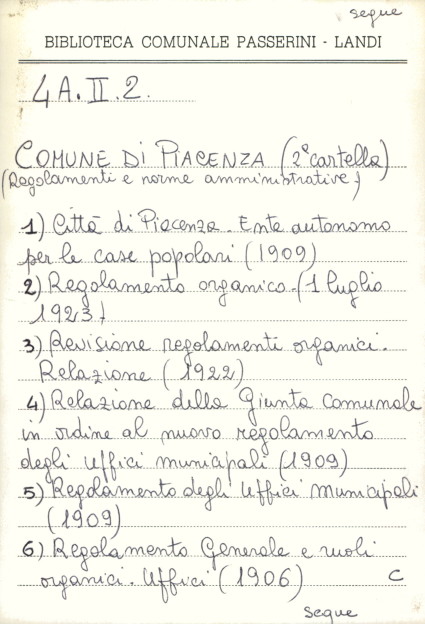 segue
BIBLIOTECA COMUNALE PASSERINI - LANDI
4A. II. 2.
COMUNE DI PIACENZA (2ª cartella)
(Regolamenti e norme amministrative)
1) Città di Piacenza. Ente autonomo
per le case popolari (1909)
2) Regolamento organico. (1 luglio
1923)
3) Revisione regolamenti organici.
Relazione (1922)
4) Relazione della Giunta Comunale
in ordine al nuovo regolamento
degli uffici municipali (1909)
5) Regolamento degli Uffici Municipali
(1909)
6) Regolamento Generale e ruoli
organici. Uffici (1906) C
segue